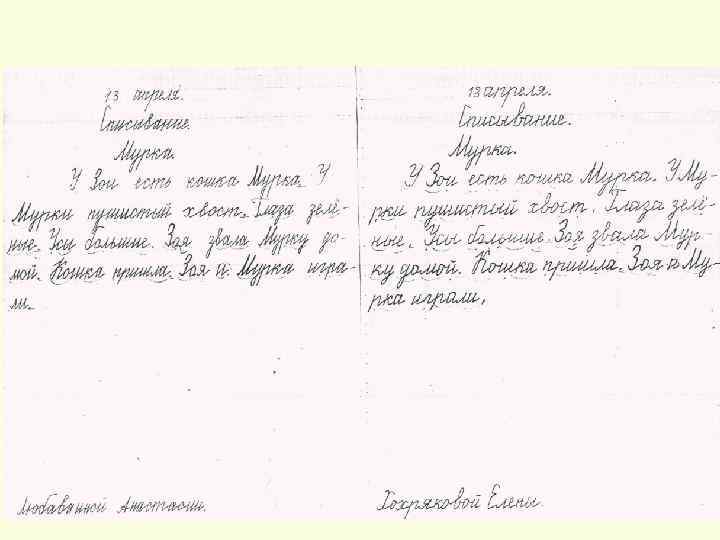 13 апреля.
Списывание.
Мурка.
У Зои есть кошка Мурка. У
Мурки пушистый хвост. Глаза зелё-
ные. Усы большие. Зоя звала Мурку до-
мой. Кошка пришла. Зоя и Мурка игра-
ли.
Любаванной Анастасии.
13 апреля.
Списывание.
Мурка.
У Зои есть кошка Мурка. У Му-
рки пушистый хвост. Глаза зелё-
ные. Усы большие. Зоя звала Мур-
ку домой. Кошка пришла. Зоя и Му-
рка играли.
Хохряковой Елены.